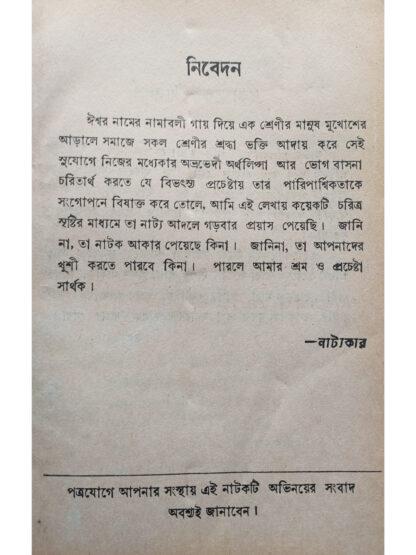 নিবেদন
ঈশ্বর নামের নামাবলী গায় দিয়ে এক শ্রেণীর মানুষ মুখোশের
আড়ালে সমাজে সকল শ্রেণীর শ্রদ্ধা ভক্তি আদায় করে সেই
সুযোগে নিজের মধ্যেকার অভ্রভেদী অর্থলিপ্সা আর ভোগ বাসনা
চরিতার্থ করতে যে বিভৎস্য প্রচেষ্টায় তার পারিপার্শ্বিকতাকে
সংগোপনে বিষাক্ত করে তোলে, আমি এই লেখায় কয়েকটি চরিত্র
সৃষ্টির মাধ্যমে তা নাট্য আদলে গড়বার প্রয়াস পেয়েছি। জানি
না, তা নাটক আকার পেয়েছে কিনা। জানিনা, তা আপনাদের
খুশী করতে পারবে কিনা। পারলে আমার শ্রম ও প্রচেষ্টা
সার্থক।
—নাট্যকার
পত্রযোগে আপনার সংস্থায় এই নাটকটি অভিনয়ের সংবাদ
অবশ্যই জানাবেন।